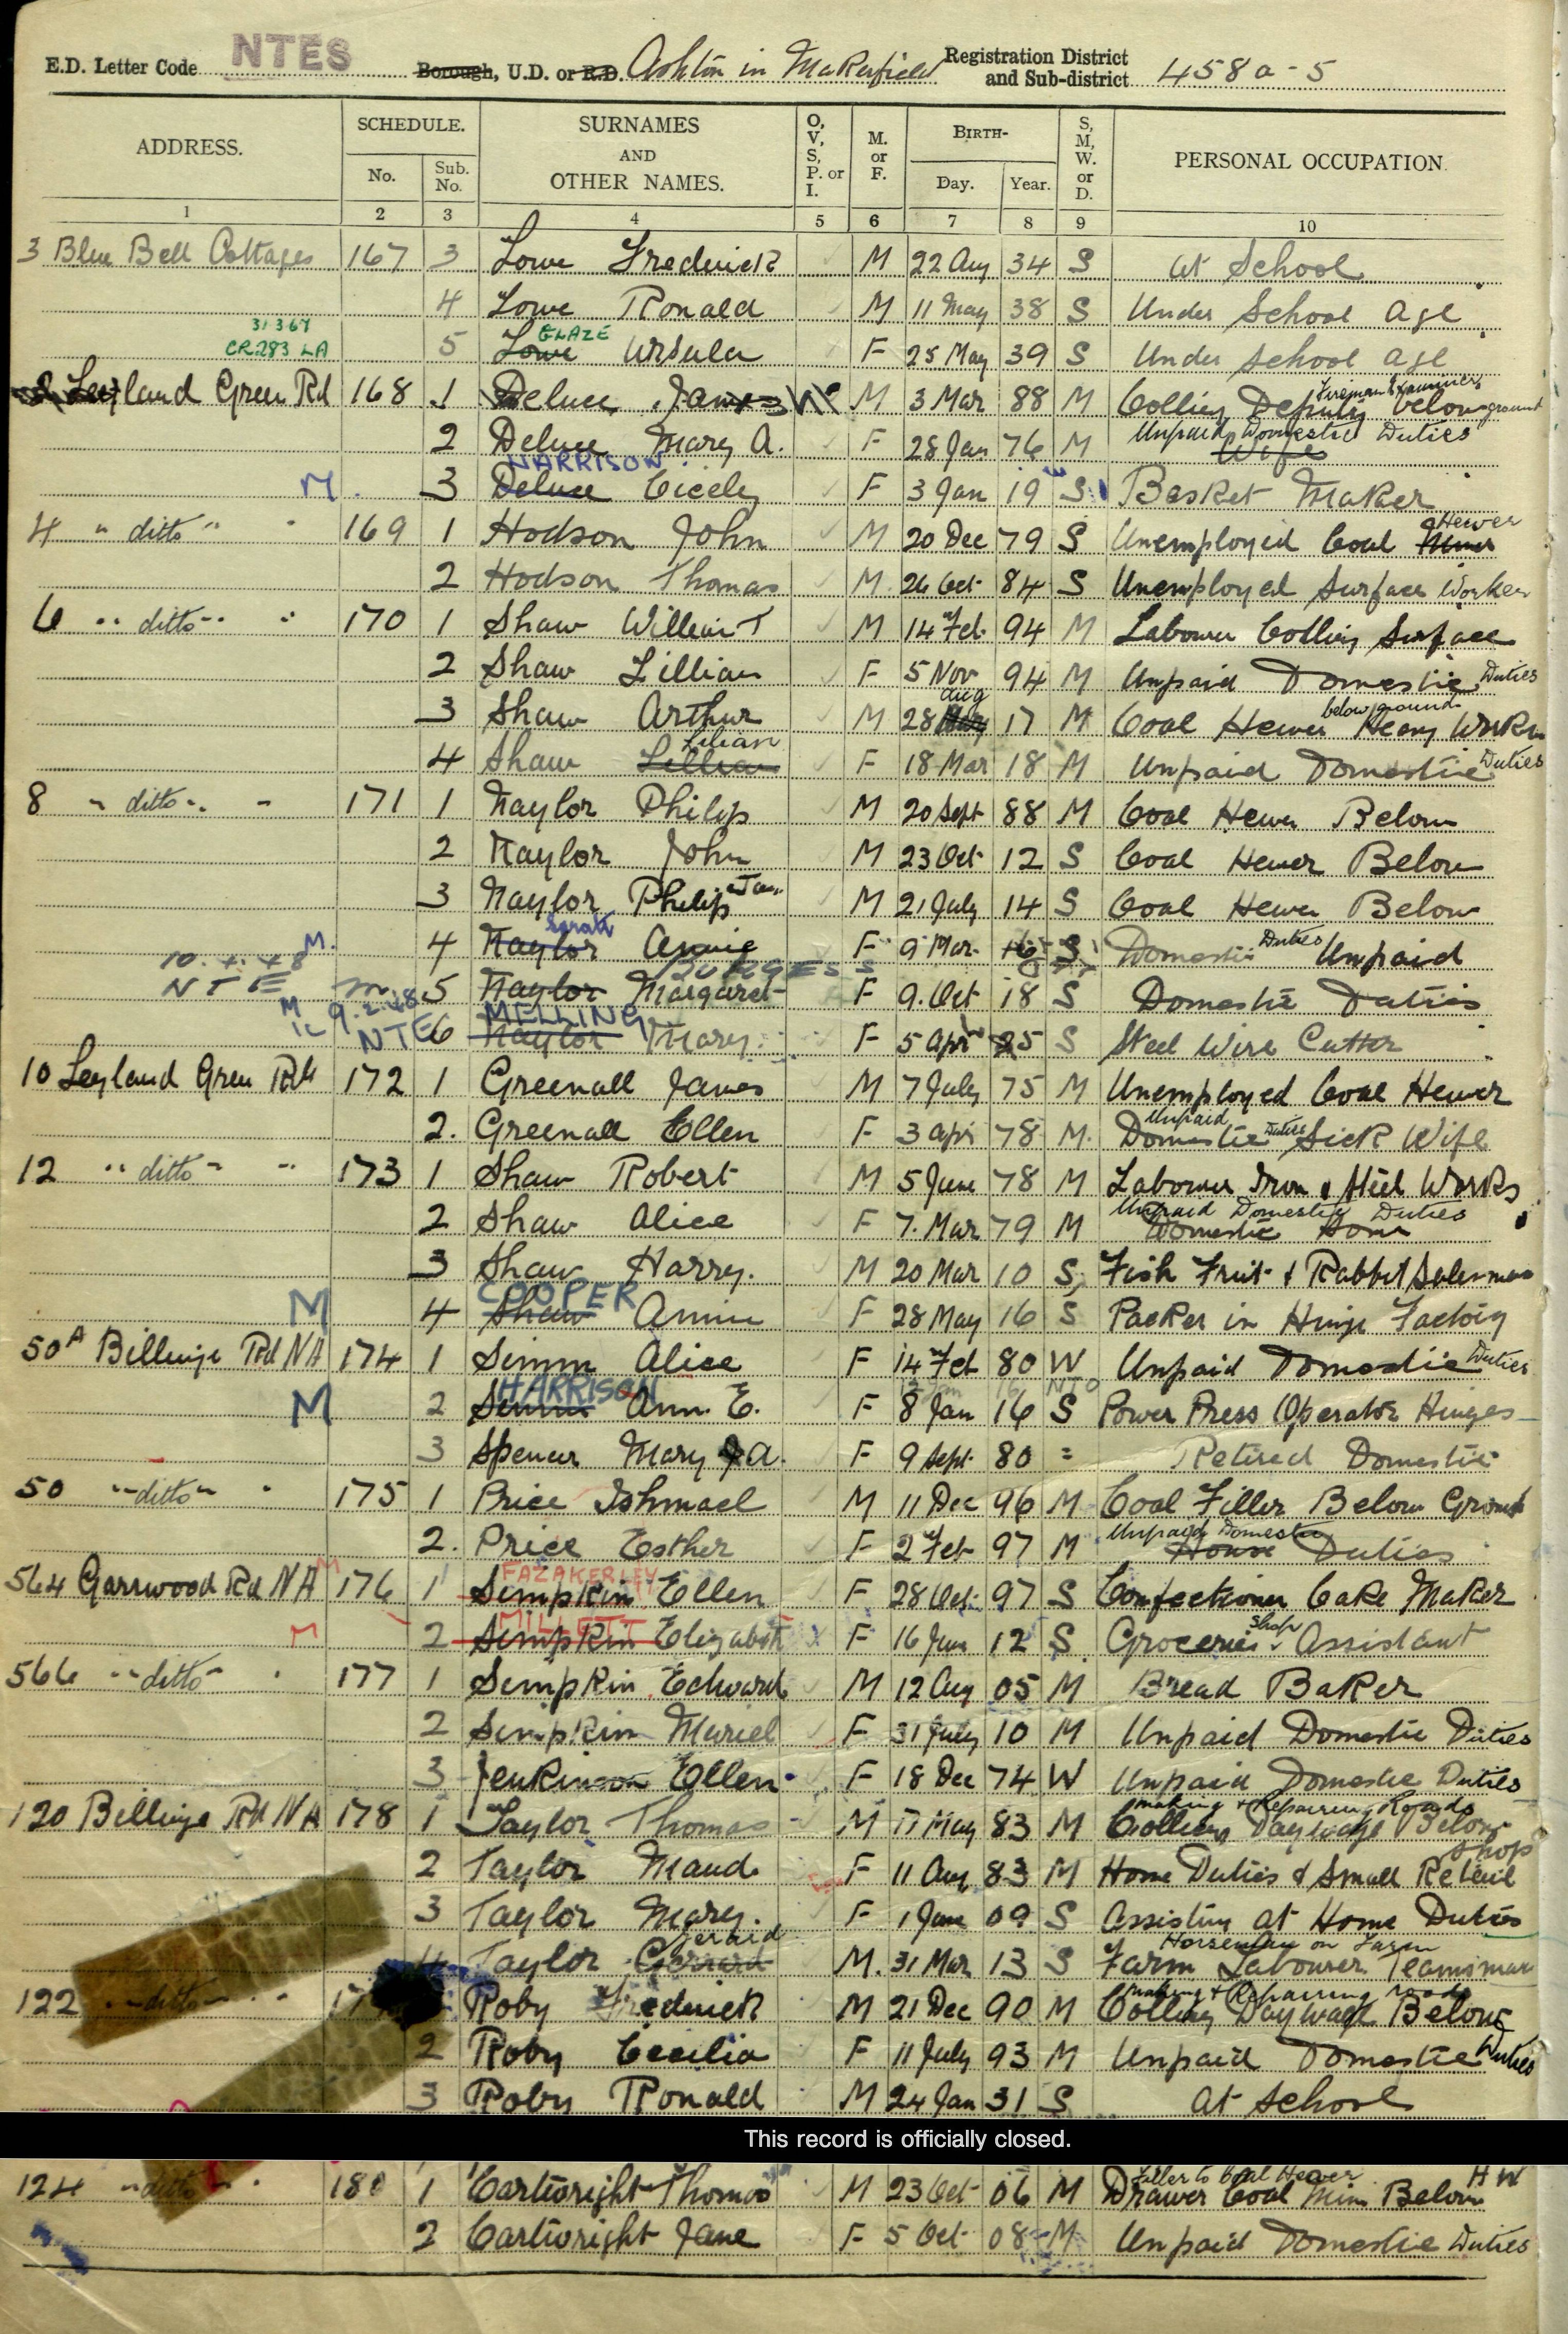 E.D. Letter Code NTES Borough, U.D. or R.D. Ashton in Makerfield Registration District and Sub-district 458a - 5
ADDRESS. SCHEDULE. No. Sub. No. SURNAMES AND OTHER NAMES. O, V, S, P. or I. M. or F. BIRTH- Day. Year. S, M, W. or D. PERSONAL OCCUPATION.
1 2 3 4 5 6 7 8 9 10
3 Blue Bell Cottages 167 3 Lowe Frederick M 22 Aug 34 S At School
4 Lowe Ronald M 11 May 38 S Under School age
31367 GLAZE
CR283 LA 5 Lowe Ursula F 25 May 39 S Under School age
Leyland Green Rd 168 1 Deluce James M 3 Mar 88 M Colliery Deputy Fireman Examiner below ground
2 Deluce Mary A. F 28 Jan 76 M Unpaid Domestic Duties Wife
HARRISON
M 3 Deluce Cicely F 3 Jan 19 S Basket Maker
4 " ditto " 169 1 Hodson John M 20 Dec 79 S Unemployed Coal Hewer
2 Hodson Thomas M 26 Oct 84 S Unemployed Surface Worker
6 " ditto " 170 1 Shaw William T M 14 Feb 94 M Labourer Colliery Surface
2 Shaw Lillian F 5 Nov 94 M Unpaid Domestic Duties
3 Shaw Arthur M 28 Aug 17 M Coal Hewer below ground Heavy Worker
4 Shaw Lillian Lilian F 18 Mar 18 M Unpaid Domestic Duties
8 " ditto " 171 1 Naylor Philip M 20 Sept 88 M Coal Hewer Below
2 Naylor John M 23 Oct 12 S Coal Hewer Below
3 Naylor Philip M 21 July 14 S Coal Hewer Below
M. 4 Naylor Annie F 9 Mar 16 S Domestic Duties Unpaid
10.4.48 BURGESS
NTE 5 Naylor Margaret F 9 Oct 18 S Domestic Duties
M 9.2.48 MELLING
NTE 6 Naylor Mary F 5 Apr 25 S Steel Wire Cutter
10 Leyland Green Rd 172 1 Greenall James M 7 July 75 M Unemployed Coal Hewer
2. Greenall Ellen F 3 Apr 78 M. Unpaid Domestic Duties Sick Wife
12 " ditto " 173 1 Shaw Robert M 5 June 78 M Labourer Iron & Steel Works
2 Shaw Alice F 7. Mar 79 M Unpaid Domestic Duties Domestic Home
3 Shaw Harry. M 20 Mar 10 S Fish Fruit & Rabbit Salesman
COOPER
M 4 Shaw Annie F 28 May 16 S Packer in Hinge Factory
50A Billinge Rd NA 174 1 Simm Alice F 14 Feb 80 W Unpaid Domestic Duties
HARRISON
M 2 Simm Ann. E. F 8 Jan 16 S Power Press Operator Hinges
3 Spencer Mary A. F 9 Sept 80 = Retired Domestic
50 " ditto " 175 1 Price Ishmael M 11 Dec 96 M Coal Filler Below Ground
2. Price Esther F 2 Feb 97 M Unpaid Domestic House Duties
FAZAKERLEY
564 Garswood Rd NA M 176 1 Simpkin Ellen F 28 Oct 97 S Confectioner Cake Maker
MILLETT
M 2 Simpkin Elizabeth F 16 Jun 12 S Groceries Shop Assistant
566 " ditto " 177 1 Simpkin Edward M 12 Aug 05 M Bread Baker
2 Simpkin Muriel F 31 July 10 M Unpaid Domestic Duties
3 Jenkinson Ellen F 18 Dec 74 W Unpaid Domestic Duties
120 Billinge Rd NA 178 1 Taylor Thomas M 17 May 83 M Making & Repairing Roads Colliery Daywage Below
2 Taylor Maud F 11 Aug 83 M Home Duties & Small Retail Shop
3 Taylor Mary. F 1 June 09 S Assisting at Home Duties
4 Taylor Gerrard Gerard M. 31 Mar 13 S Horseman on Farm Farm Labourer Teamsman
122 " ditto " 17 Roby Frederick M 21 Dec 90 M Making & Repairing roads Colliery Daywage Below
2 Roby Cecilia F 11 July 93 M Unpaid Domestic Duties
3 Roby Ronald M 24 Jan 31 S At School
This record is officially closed.
124 " ditto " 180 1 Cartwright Thomas M 23 Oct 06 M Filler to Coal Hewer Drawer Coal Mine Below HW
2 Cartwright Jane F 5 Oct 08 M Unpaid Domestic Duties